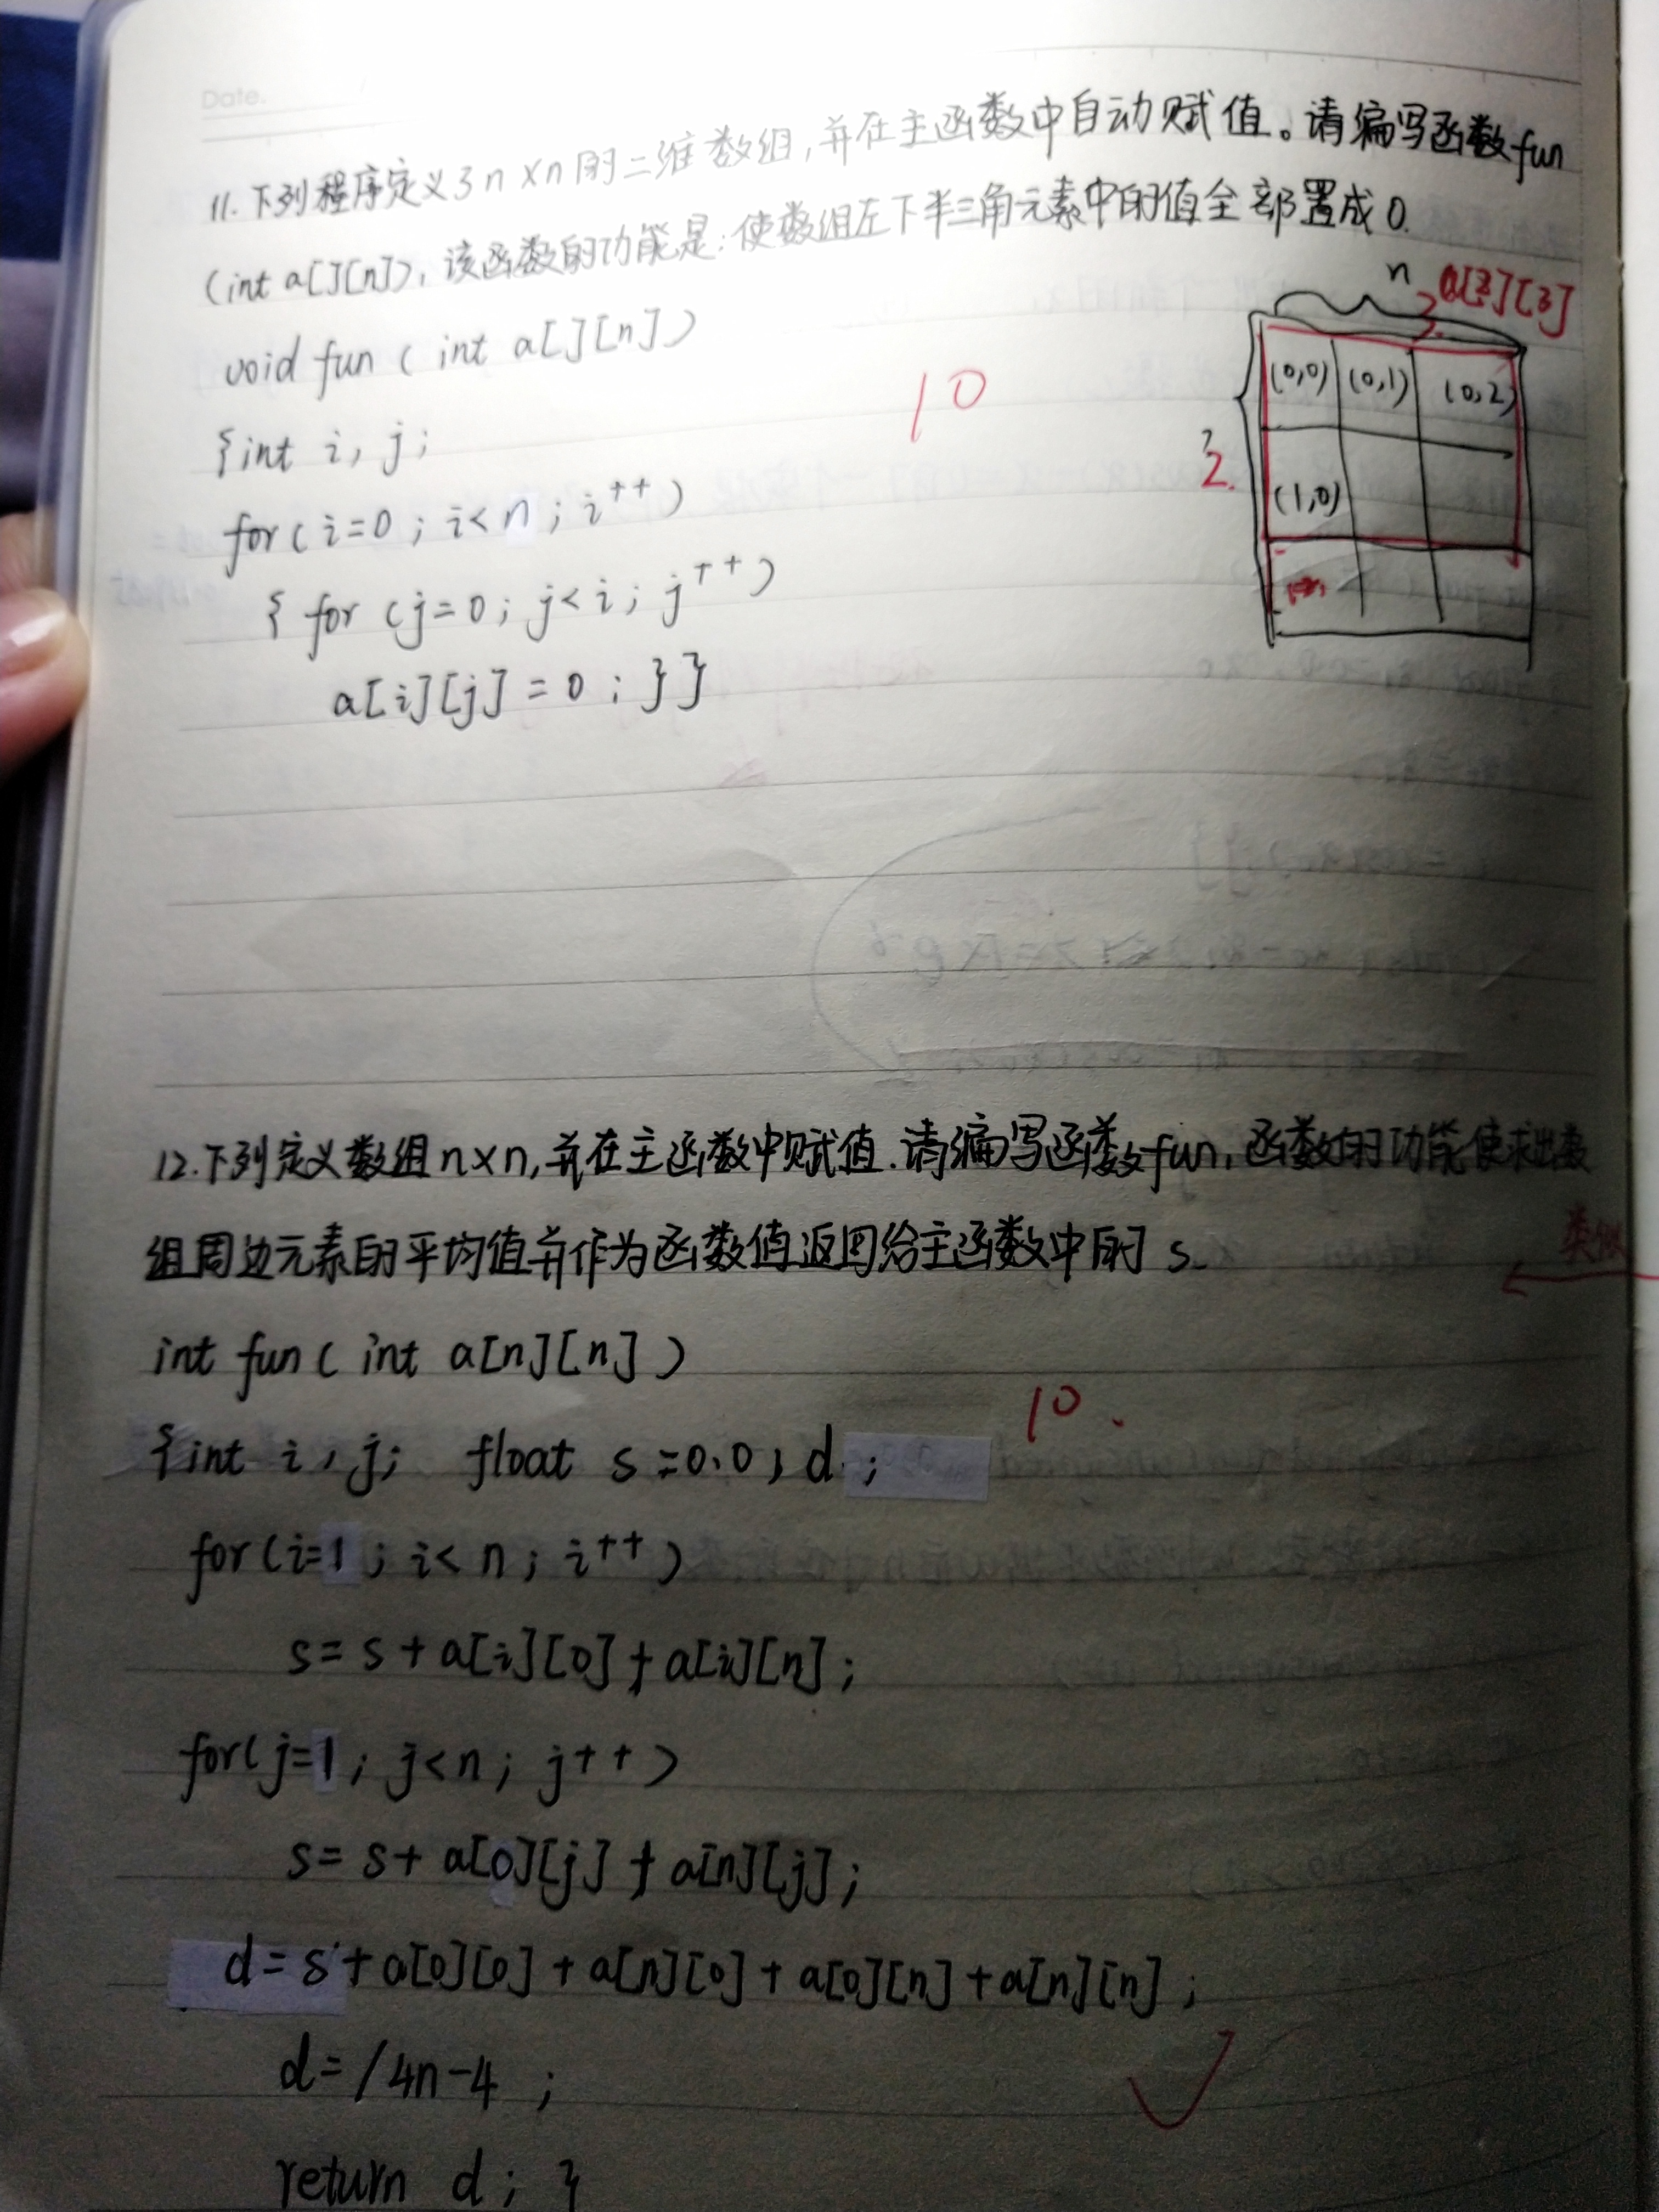 Date.
11.下列程序定义了n×n的二维数组,并在主函数中自动赋值。请编写函数fun
(int a[][n]),该函数的功能是:使数组左下半三角元素中的值全部置成0.
n a[3][3]
3.
void fun ( int a[][n])
10
(0,0) (0,1) (0,2)
{int i, j;
2.
(1,0)
for(i=0 ; i<n ; i++)
{ for (j=0; j<i; j++)
a[i][j] = 0 ; } }
12.下列定义数组n×n,并在主函数中赋值.请编写函数fun,函数的功能使求出数
组周边元素的平均值并作为函数值返回给主函数中的 s.
类似
int fun( int a[n][n] )
10.
{int i, j; float s=0.0, d ;
for(i=1 ; i< n ; i++)
s= s + a[i][0] + a[i][n] ;
for(j=1 ; j<n ; j++)
s= s+ a[0][j] + a[n][j] ;
d= s+ a[0][0] + a[n][0] + a[0][n] + a[n][n] ;
d= /4n-4 ;
return d ; }